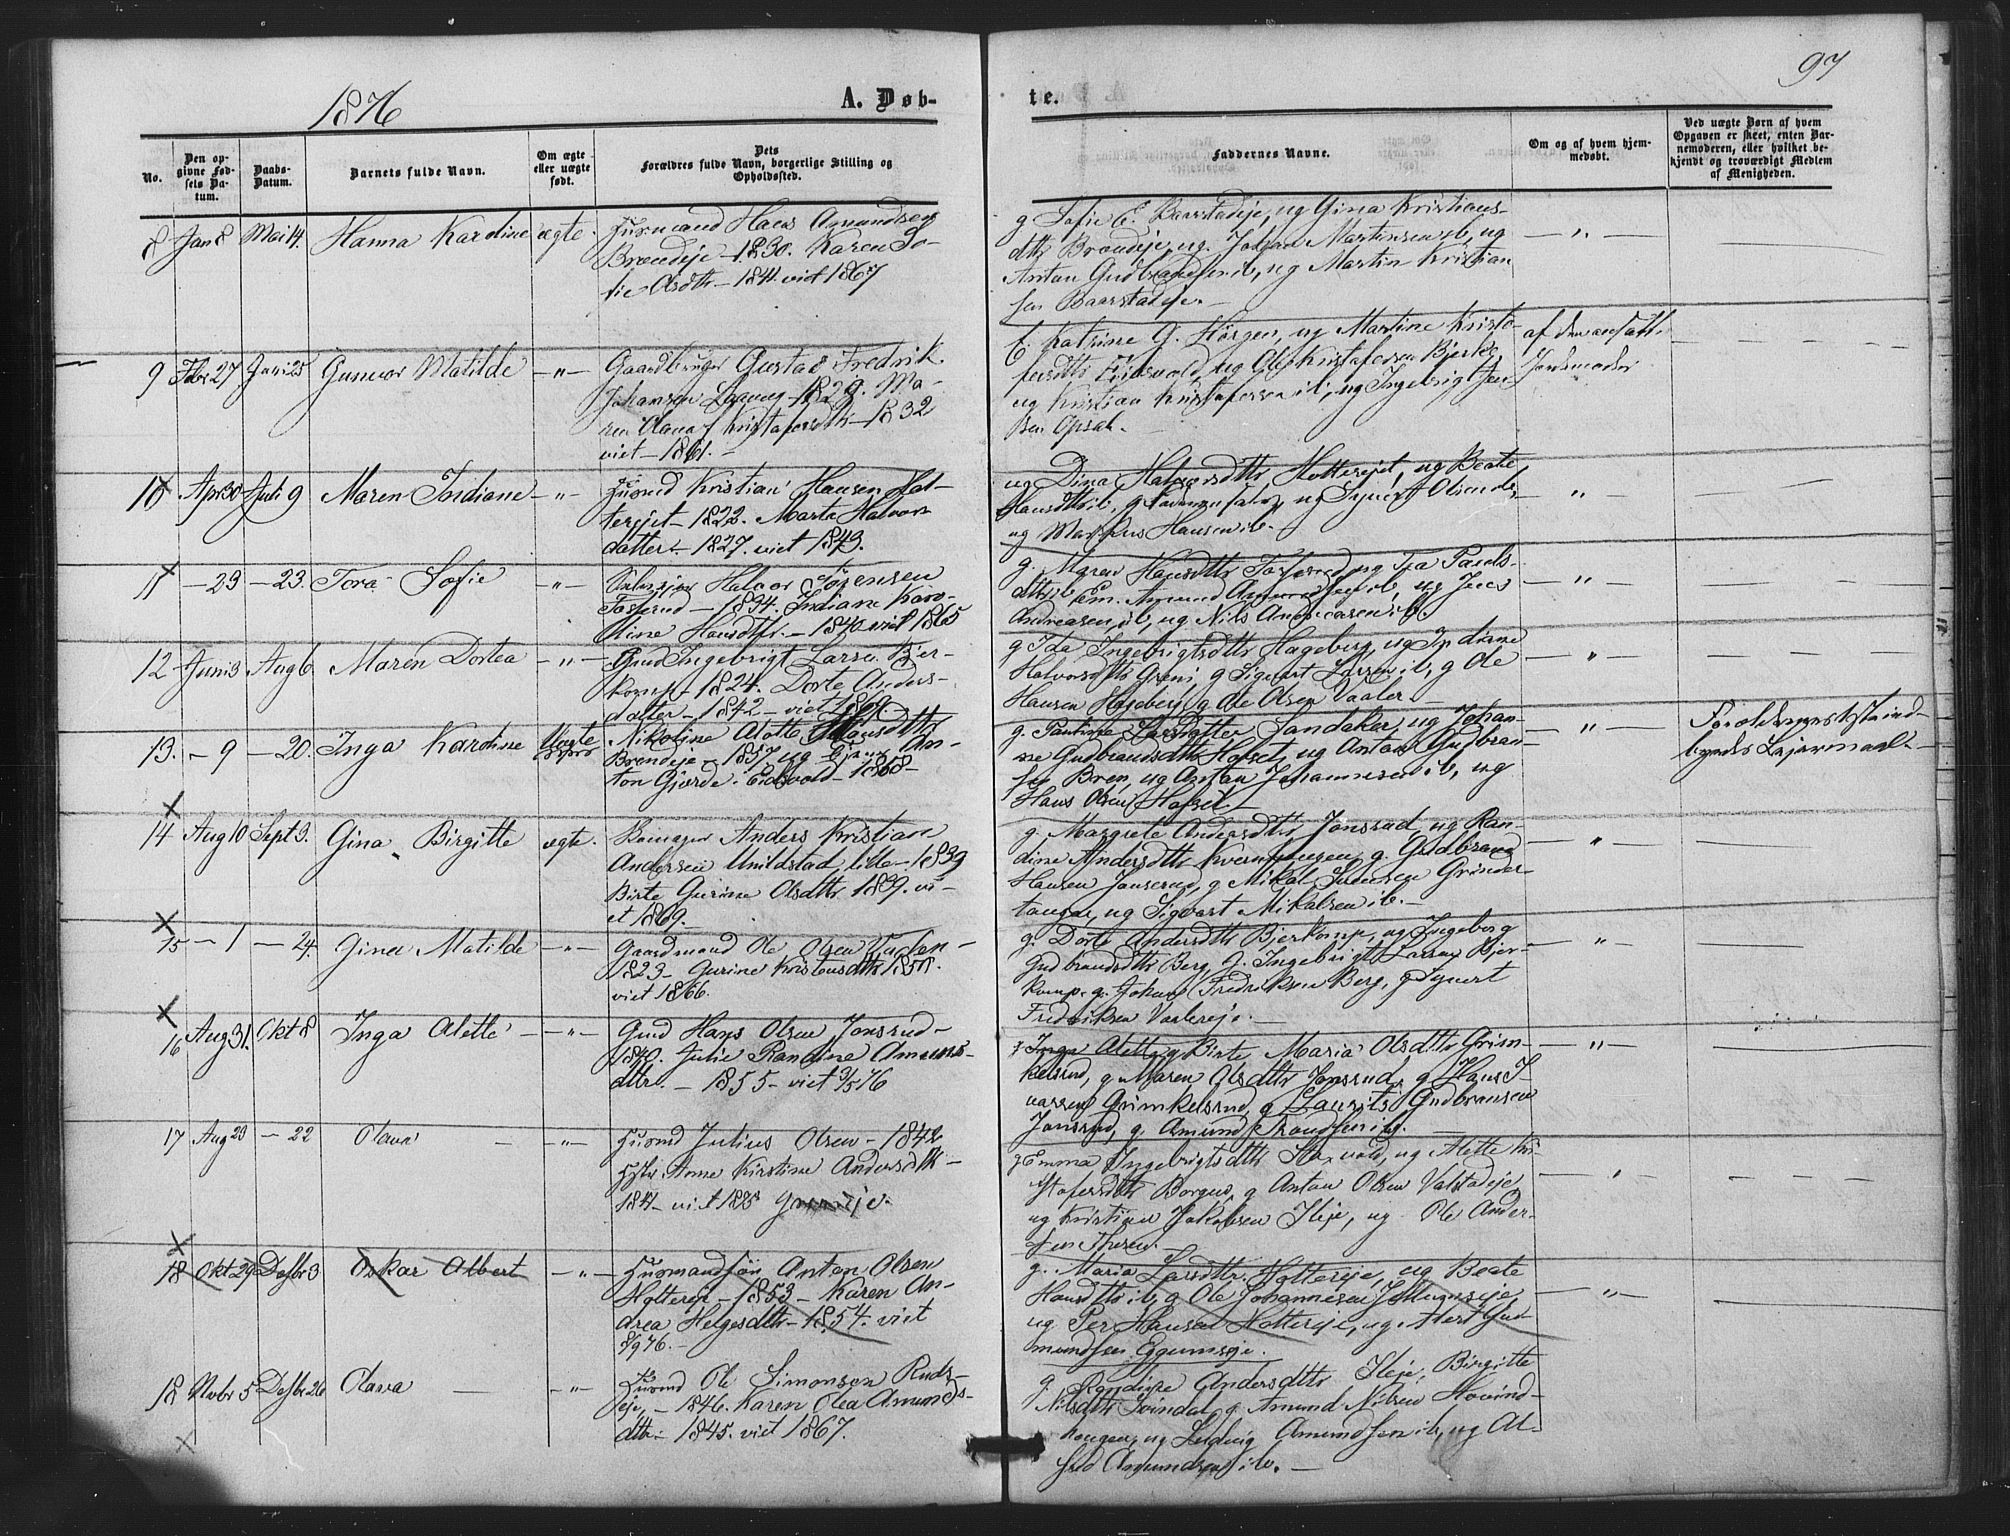 1876
A. Døb-
te.
97
No.
Den op-
givne Fød-
sels Da-
tum.
Daabs-
Datum.
Barnets fulde Navn.
Om ægte
eller uægte
født.
Dets
Forældres fulde Navn, borgerlige Stilling og
Opholdssted.
Faddernes Navne.
Om og af hvem hjem-
medøbt.
Ved uægte Børn af hvem
Opgaven er skeet, enten Bar-
nemoderen, eller hvilket be-
kjendt og troværdigt Medlem
af Menigheden.
8 Jan 8 Mai 14. Hanna Karoline ægte. Husmand Hans Amundsen
Brændeje - 1830. Karen So-
fie Olsdtr - 1841 viet 1867
g. Sofie E. Baarstadeje, ug Gina Kristians-
dtr Brændeje, ug. Johan Martinsen ib, ug
Anton Gudbrandsen ib, ug Martin Kristian
sen Baarstadeje.
9 Febr 27 Juni 25 Gunvor Matilde -"- Gaardbruger Gustav Fredrik
Johansen - 1829. Ma-
ren Olava Kristofersdtr - 1832
viet - 1861.
E. Katrine G. Hørgen, ug Martine Kristo-
fersdtr Eidsvold, ug Ole Kristofersen Bjerke,
ug Kristian Kristofersen ib, ug Ingebrigt Jen
sen Opsal.
af den ansatte
Jordemoder
10 Apr 30 Juli 9 Maren Indiane -"- Husmd Kristian Hansen Hol-
tereje - 1822. Marte Halvors
datter - 1827. viet 1843.
ug Dina Halvorsdtr Holtereje, ug Beate
Hansdtr ib, g ug Olsen ib,
ug Markus Hansen ib.
11 - 23 - 23. Tora Sofie -"- Halvor Sørensen
Fosserud - 1834. Indiane Karo-
line Hansdtr. - 1840 viet 1865
g. Maren Hansdtr Fosserud, ug Tea Pauls-
dtr ib, Em. Amund Amundsen ib, ug Jens
Andreasen ib, ug Nils Andreasen ib.
12 Juni 3 Aug 6. Maren Dortea -"- Gmd Ingebrigt Larsen Bjer-
komp - 1824. Dorte Anders-
datter - 1842 - viet 1869
g Ida Ingebrigtsdtr Hageberg, ug Indiane
Halvorsdtr Greni, g Sigvart Larsen ib, g Ole
Hansen Hageberg, g Ole Olsen Vaaler
13. - 9 - 20. Inga Karoline Uægte
Nikoline Alette Hansdtr
Brendeje - 1857 ug An-
ton Gjerde. Eidsvold - 1858
g. Pauline Larsdatter Sandaker, ug Johan-
ne Gudbrandsdtr Hofset, ug Anton Gudbran-
sen Bren, ug Anton Johannesen ib, ug
Hans Olsen Hofset
14 Aug 10 Sept 3. Gina Birgitte ægte. Anders Kristian
Andersen Unildstad lille - 1839
Birte Gurine Olsdtr 1839. vi-
et 1869.
g. Margrete Andersdtr Jonsrud, ug Ran-
dine Andersdtr Kvernhusen, g. Gudbrand
Hansen Jonsrud, g Mikal Grinder-
tangen, ug Sigvart Mikalsen ib.
15 - 1 - 24. Gina Matilde -"- Gaardmand Ole Olsen
1823 - Gurine Kristensdtr
viet 1866.
g. Dorte Andersdtr Bjerkomp, ug Ingeborg
Gudbrandsdtr Berg, g. Ingebrigt Larsen Bjer-
komp. g. Johan Fredriksen Berg, g Synert
Fredriksen Valereje.
16 Aug 31. Okt 8 Inga Alette -"- Gmd Hans Olsen Jonsrud -
1840. Julie Randine Amunds-
dtr. - 1855 - viet 3/5 76
g Inga Alette g Birte Maria Olsdtr Grim-
kelsrud, g Maren Olsdtr Jonsrud, g Hans I-
varsen Grimkelsrud, g Laurits Gudbransen
Jonsrud, g. Amund ib.
17 Aug 23 - 22 Olava -"- Husmd Julius Olsen - 1842
Anne Kirstine Andersdtr -
1841 - viet
g Emma Ingebrigtsdtr, ug Alette Kri-
stofersdtr Borgus, g Anton Olsen Valstadeje
ug Kristian Jakobsen Ileje, ug Ole Ander-
sen
18 Okt 29 Desbr 3 Oskar Albert -"- Husmandssøn Anton Olsen
Holtereje - 1853 - Karen An-
drea Helgesdtr - 1854. viet
8/9 76.
g. Maria Larsdtr. Holtereje, ug Beate
Hansdtr ib, g Ole Johannesen
ug Per Hansen Holtereje, ug Gud-
mundsen Eggumseje.
18 Nvbr 5 Desbr 26 Olava -"- Husmd Ole Simonsen Ruds-
eje, - 1846. Karen Olea Amunds-
dtr - 1845. viet 1867.
g. Randine Andersdtr Ileje, Birgitte
Nilsdtr Svindal, g Amund Nilsen Hovind-
haugen, ug Ludvig Amundsen ib, ug Al-
fred Amundsen ib.